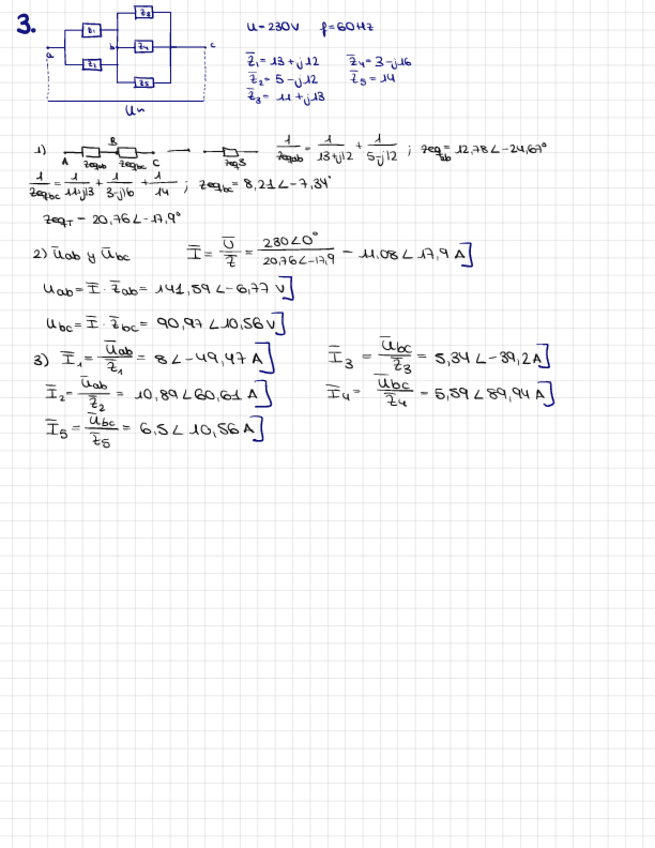 3.
Z3
U = 230V f = 60Hz
Z4
a b c
Z5
Un
Z̄1 = 13 + j12 Z̄4 = 3 - j16
Z̄2 = 5 - j12 Z̄5 = 14
Z̄3 = 11 + j13
1) A Zeqab B Zeqbc C 1/Zeqab = 1/13+j12 + 1/5-j12 ; Zeqab = 12,78∠-24,67°
1/Zeqbc = 1/11+j13 + 1/3-j16 + 1/14 ; Zeqbc = 8,21∠-7,34°
ZeqT - 20,76∠-17,9°
2) Ūab y Ūbc Ī = Ū/Z̄ = 230∠0°/20,76∠-17,9 - 11,08∠17,9 A]
Uab = Ī · Z̄ab = 141,59∠-6,77 V]
Ubc = Ī · Z̄bc = 90,97∠10,56 V]
3) Ī1 = Ūab/Z̄1 = 8∠-49,47 A] Ī3 = Ūbc/Z̄3 = 5,34∠-39,2 A]
Ī2 = Ūab/Z̄2 = 10,89∠60,61 A] Ī4 - Ūbc/Z̄4 - 5,59∠89,94 A]
Ī5 = Ūbc/Z̄5 = 6,5∠10,56 A]